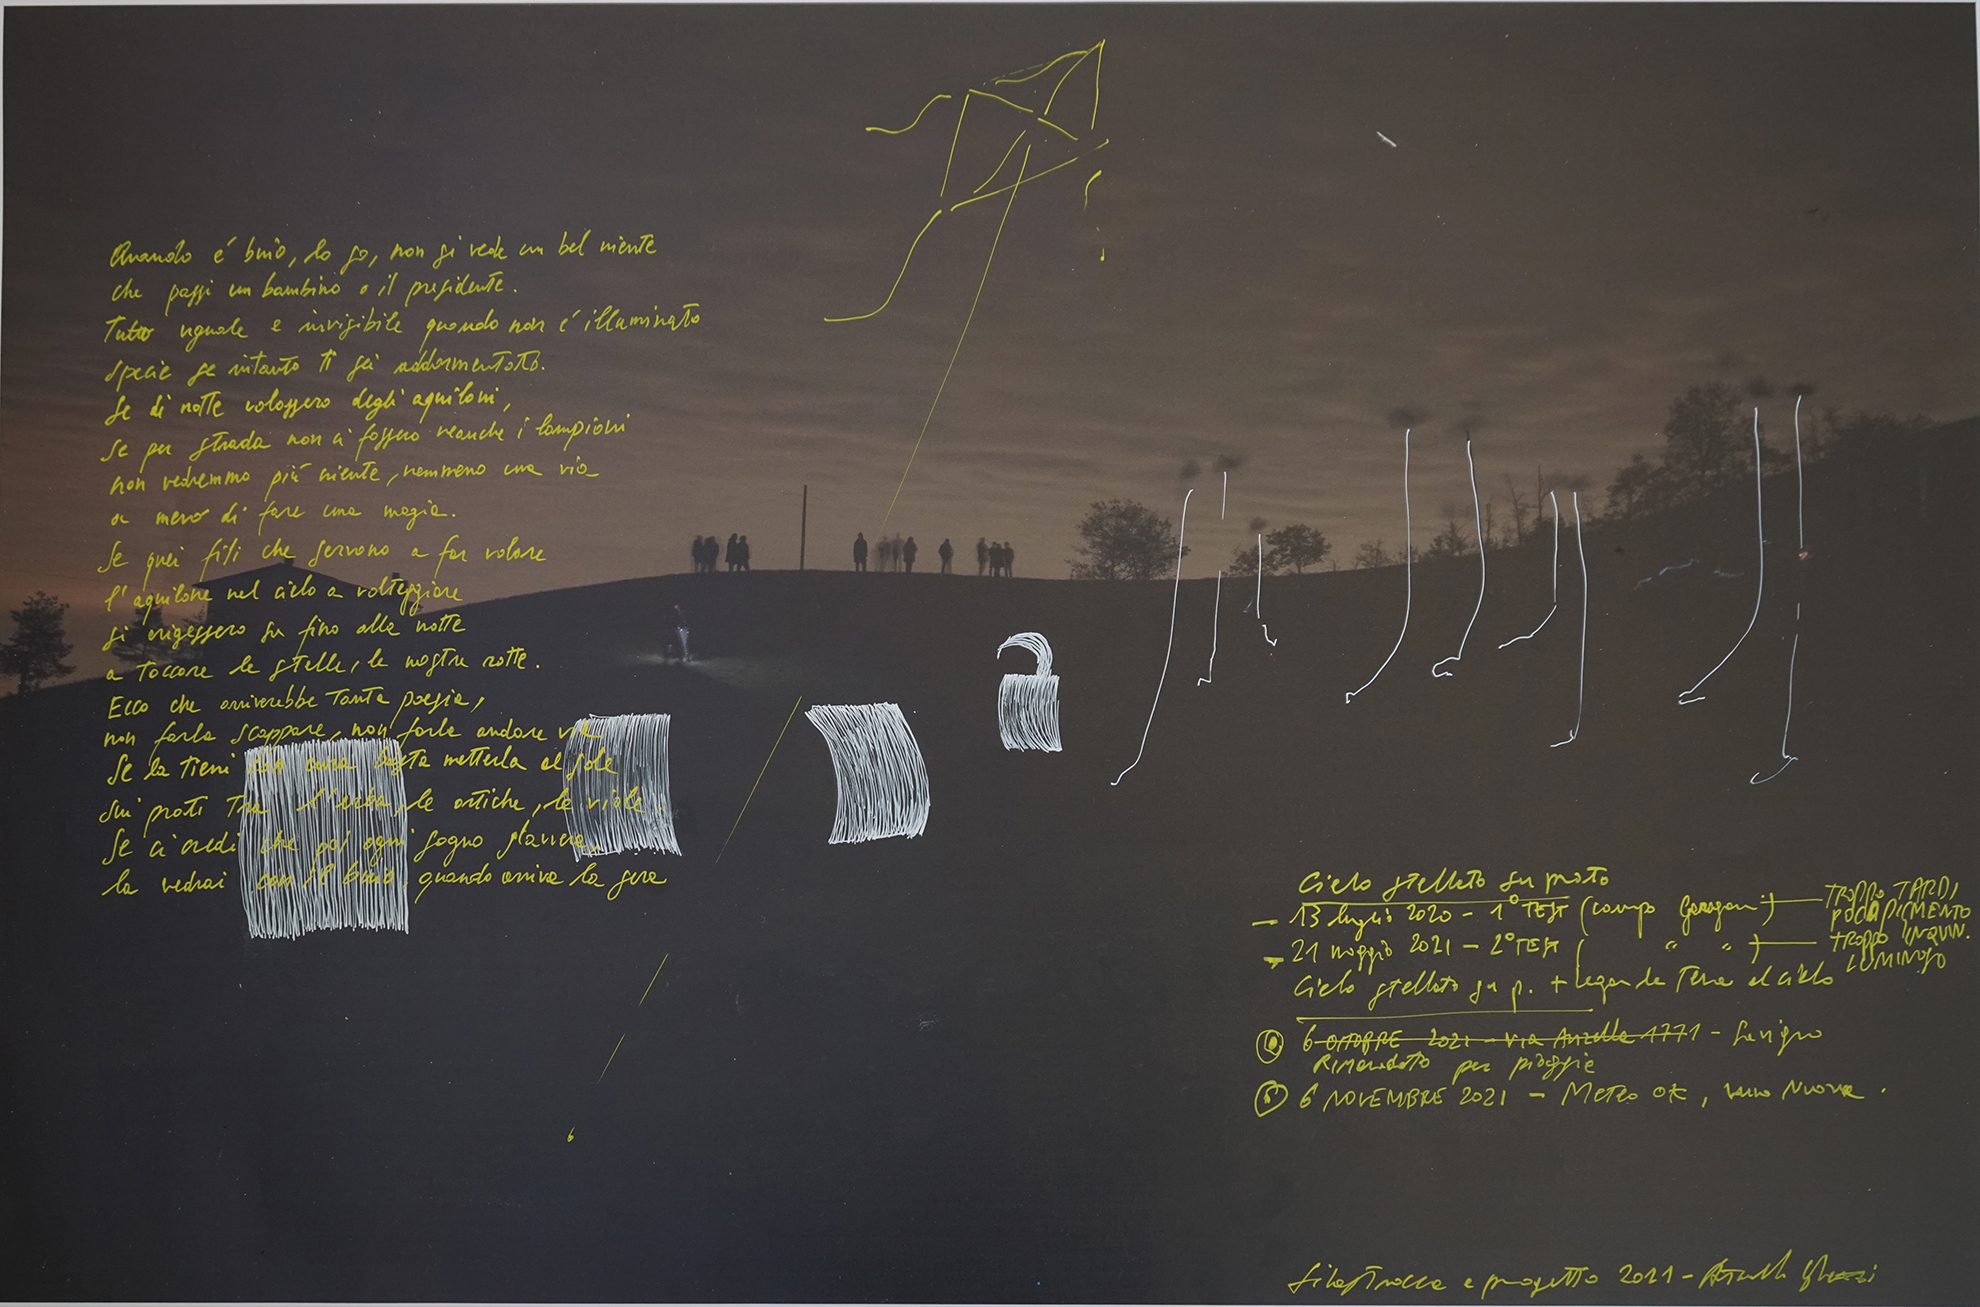 Quando é buio, lo so, non si vede un bel niente
che passi un bambino o il presidente.
Tutto uguale e invisibile quando non é illuminato
specie se intanto ti sei addormentato.
Se di notte volassero degli aquiloni,
se per strada non ci fossero neanche i lampioni
non vedremmo più niente, nemmeno una via
a meno di fare una magia.
Se quei fili che servono a far volare
l'aquilone nel cielo a volteggiare
si ergessero su fino alla notte
a toccare le stelle, le nostre rotte.
Ecco che arriverebbe tanta poesia,
non farla scappare, non farla andare via
Se la tieni con cura basta metterla al sole
sui prati tra l'erba, le ortiche, le viole.
Se ci credi che poi ogni sogno s'avvera,
la vedrai con il buio, quando arriva la sera
Cielo stellato su prato
- 13 luglio 2020 - 1° TEST (campo) TROPPO TARDI POCO PIGMENTO
- 21 maggio 2021 - 2° TEST ( " " ) TROPPO INQUIN. LUMINOSO
Cielo stellato su p. + legare la Terra al cielo
6 OTTOBRE 2021 - via 1771 - Savigno
Rimandato per pioggie
6 NOVEMBRE 2021 - Meteo OK, luna Nuova.
filastrocca e progetto 2021 -
6